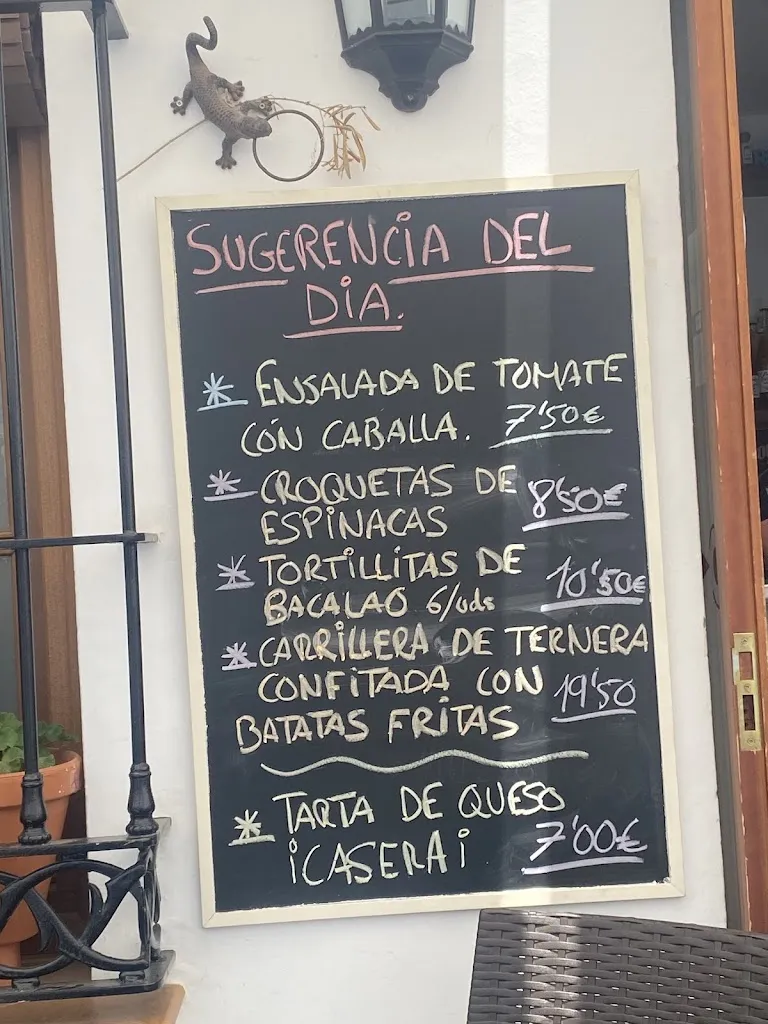 SUGERENCIA DEL
DIA.
* ENSALADA DE TOMATE
CON CABALLA. 7'50€
* CROQUETAS DE 8'50€
ESPINACAS
* TORTILLITAS DE 10'50€
BACALAO 6/uds
* CARRILLERA DE TERNERA
CONFITADA CON 19'50
BATATAS FRITAS
* TARTA DE QUESO
¡CASERA¡ 7'00€